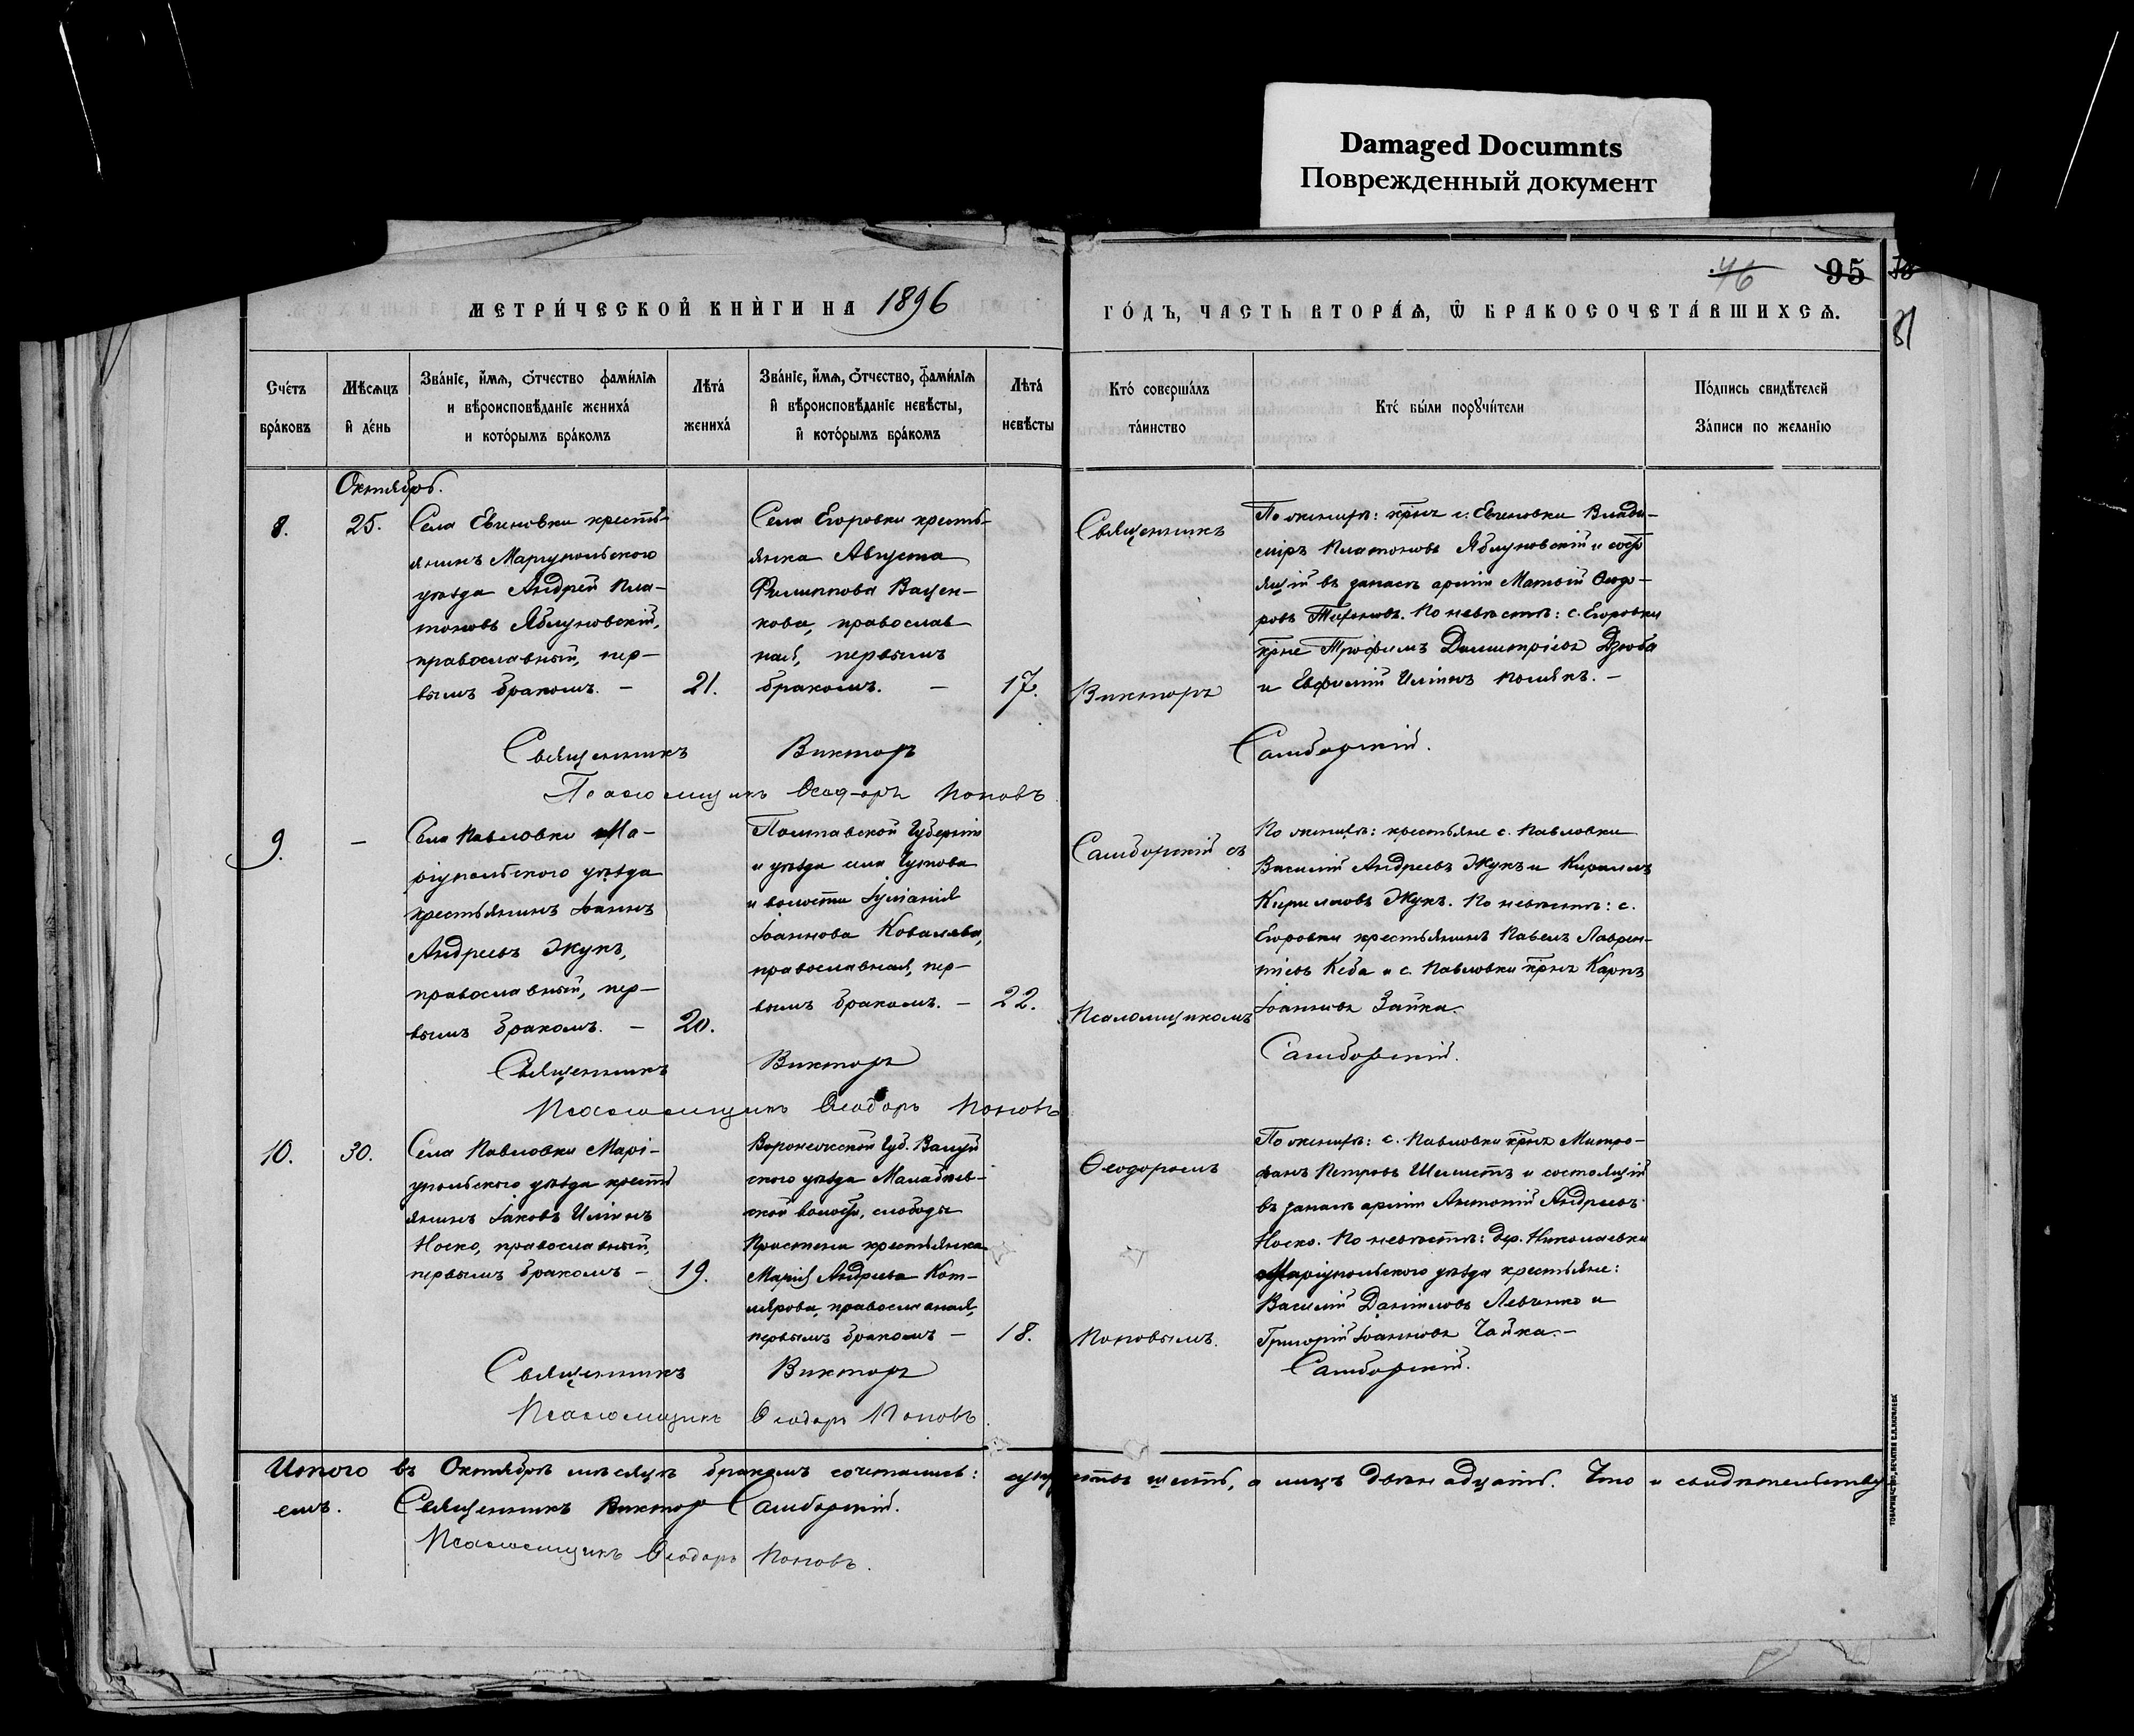 Damaged Documnts
Поврежденный документ
46 95
81
МЕТРИ́ЧЕСКОЙ КНИ́ГИ НА 1896
ГО́ДЪ, ЧАСТЬ ВТОРА́Ѧ, Ѿ БРАКОСОЧЕТА́ВШИХСѦ.
Сче́тъ
бра́ковъ
Мѣ́сѧцъ
и҆ де́нь
Зва́нїе, и҆́мѧ, ѻ҆́тчество фами́лїѧ
и вѣроисповѣ́данїе жениха́
и кото́рымъ бра́комъ
Лѣ́та
жениха́
Зва́нїе, и҆́мѧ, ѻ҆́тчество, фами́лїѧ
и҆ вѣроисповѣ́данїе невѣ́сты,
и҆ кото́рымъ бра́комъ
Лѣ́та
невѣ́сты
Кто́ соверша́лъ
та́инство
Кто́ бы́ли порꙋчи́тели
По́дпись свидѣ́телей
За́писи по жела́нїю
Октябрь.
8.
25.
Села Евгеновки кресть-
янинъ Маріупольского
уѣзда Андрей Пла-
тоновъ Яблуновскій,
православный, пер-
вымъ бракомъ. —
21.
Села Егоровки кресть-
янка Августа
Филиппова Ващен-
кова, православ
ная, первымъ
бракомъ. —
17.
Священникъ
Викторъ
По женихѣ: кр-нъ с. Евгеновки Влади-
міръ Платоновъ Яблуновскій и состо
ящій въ запасѣ арміи Матѳій Ѳеодо-
ровъ. По невѣстѣ: с. Егоровки
кр-не Трофимъ Димитріевъ Дзюба
и Евфимій Иліинъ Полякъ. —
Священникъ Викторъ Самборскій.
Псаломщикъ Ѳеодоръ Поповъ
9.
—
Села Павловки Ма-
ріупольского уѣзда
крестьянинъ Іоаннъ
Андреевъ Жукъ,
православный, пер-
вымъ бракомъ. —
20.
Полтавской Губерніи
и уѣзда села Чутова
и волости Іуліанія
Іоаннова Ковалева,
православная, пер-
вымъ бракомъ. —
22.
Самборскій съ
Псаломщикомъ
По женихѣ: крестьяне с. Павловки
Василій Андреевъ Жукъ и Кириллъ
Кирилловъ Жукъ. По невѣстѣ: с.
Егоровки крестьянинъ Павелъ Лаврен-
тіевъ Кеба и с. Павловки кр-нъ Карпъ
Іоанновъ Зайка.
Священникъ Викторъ Самборскій.
Псаломщикъ Ѳеодоръ Поповъ
10.
30.
Села Павловки Марі-
упольского уѣзда кресть
янинъ Іаковъ Иліинъ
Носко, православный,
первымъ бракомъ —
19.
Воронежской Губ. Валуй
ского уѣзда
ской волости, слободы
крестьянка
Марія Андреева Кот-
лярова, православная,
первымъ бракомъ —
18.
Ѳеодоромъ
Поповымъ.
По женихѣ: с. Павловки кр-нъ Митро-
фанъ Петровъ Шелистъ и состоящій
въ запасѣ арміи Антоній Андреевъ
Носко. По невѣстѣ: дер. Николаевки
Маріупольского уѣзда крестьяне:
Василій Даніиловъ Левченко и
Григорій Іоанновъ Чайка. —
Священникъ Викторъ Самборскій.
Псаломщикъ Ѳеодоръ Поповъ.
Итого въ Октябрѣ мѣсяцѣ бракомъ сочетались: супружествъ шесть, а лицъ двѣнадцать. Что и свидѣтельству-
емъ. Священникъ Викторъ Самборскій.
Псаломщикъ Ѳеодоръ Поповъ.